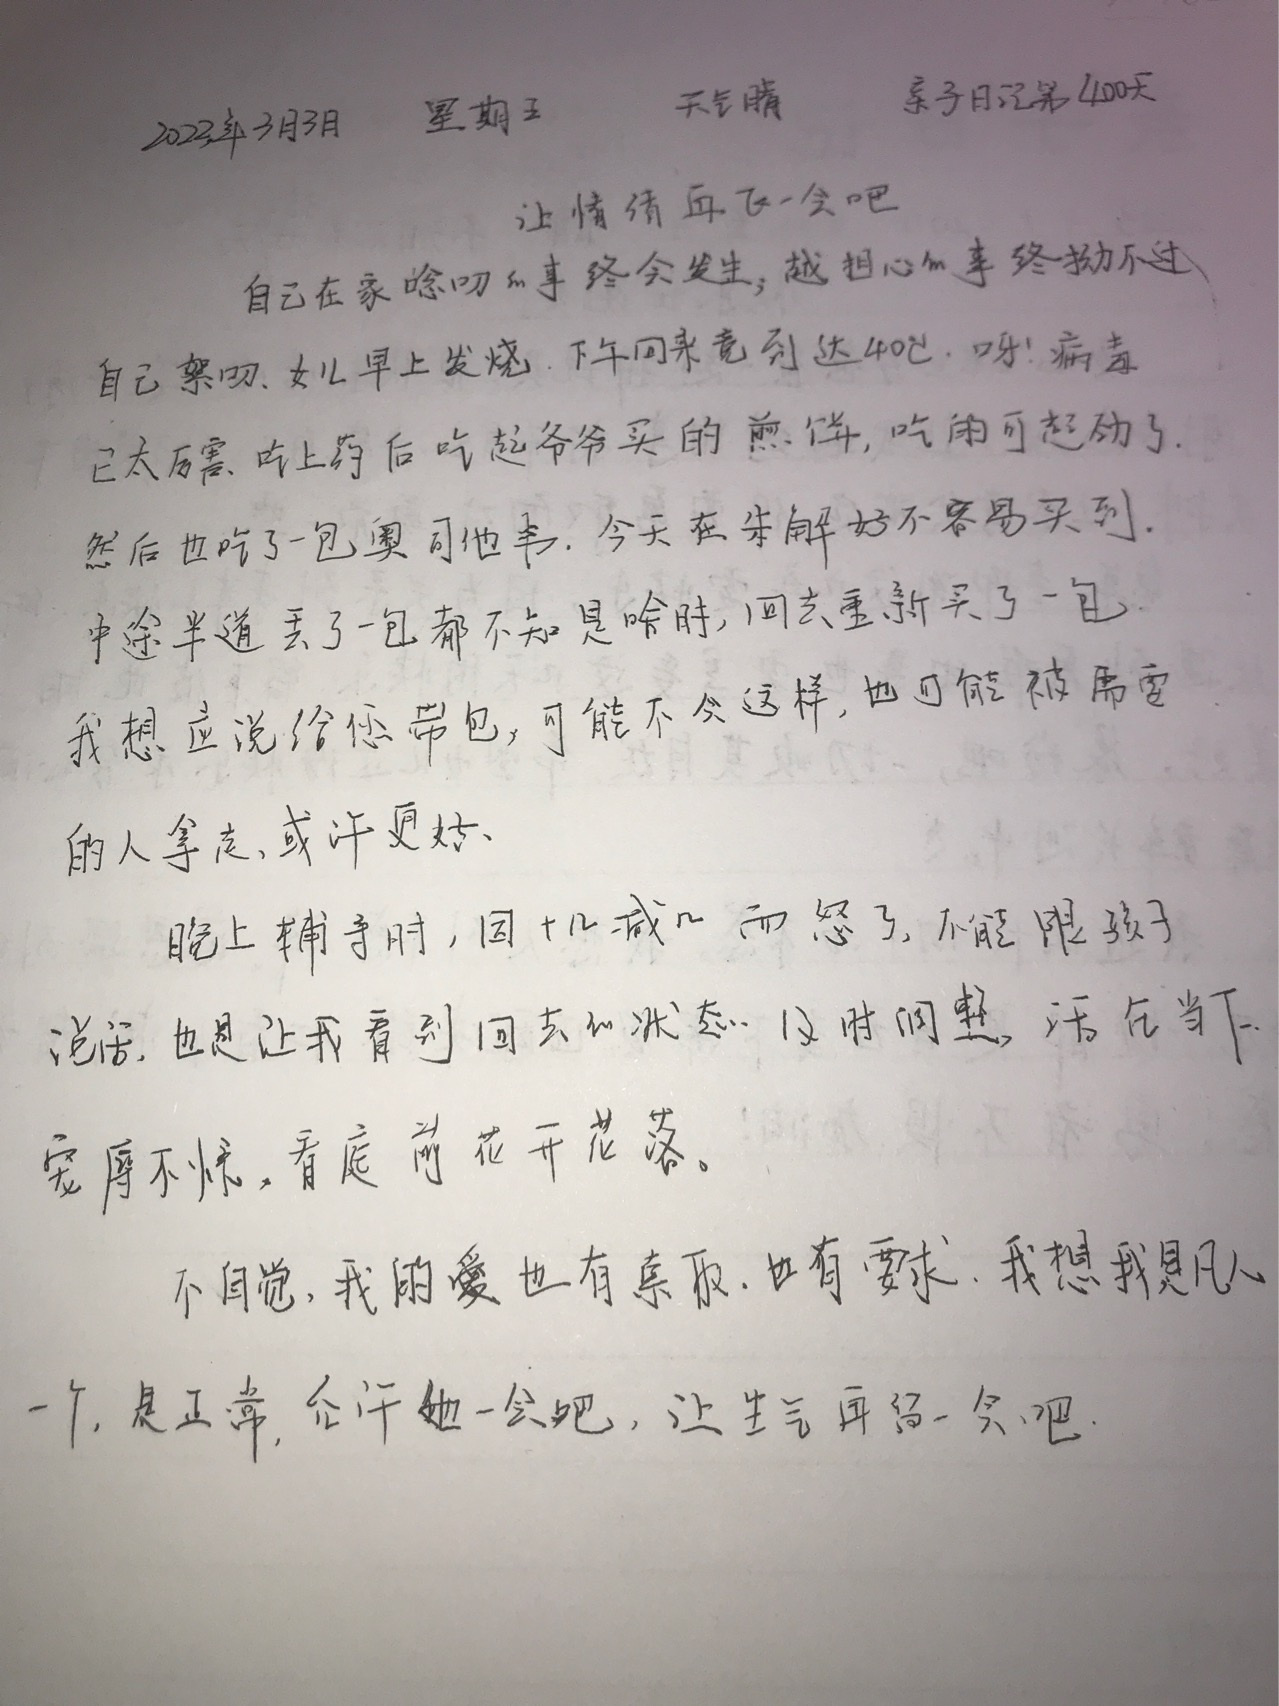 2023年3月3日 星期五 天气晴 亲子日记第400天
让情绪再飞一会吧
自己在家唸叨的事终会发生,越担心的事终拗不过
自己絮叨、女儿早上发烧.下午回来竟到达40℃.呀!病毒
已太厉害、吃上药后吃起爷爷买的煎饼,吃的可起劲了.
然后也吃了一包奥司他韦.今天在朱解好不容易买到.
中途半道丢了一包都不知是啥时,回去重新买了一包.
我想应说给您带包,可能不会这样,也可能被需要
的人拿走、或许更好、
晚上辅导时,因十几减几而怒了,不能跟孩子
说话,也是让我看到回去的状态.没时间整,活在当下.
宠辱不惊,看庭前花开花落。
不自觉,我的爱也有索取.也有要求.我想我是凡人
一个,是正常,允许她一会吧,让生气再留一会吧.